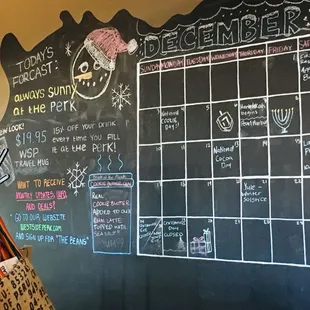 TODAY'S
FORCAST:
ALWAYS SUNNY
AT THE PERK
LOOK!
$19.95
WSP
TRAVEL MUG
15% OFF YOUR DRINK
EVERY TIME YOU FILL
IT AT THE PERK!
WANT TO RECEIVE
MONTHLY UPDATES,
AND DEALS?
GO TO OUR WEBSITE
WESTSIDEPERK.COM
AND SIGN UP FOR "THE BEANS"
COOKIE BUTTER
ADDED TO OUR
LATTE
TOPPED WITH
SEA SALT
DECEMBER
SUNDAY MONDAY TUESDAY WEDNESDAY THURSDAY FRIDAY
NATIONAL
COOKIE
DAY!
HANUKKAH
BEGINS
NATIONAL
COCOA
DAY
WINTER
SOLSTICE
CHRISTMAS
DAY
CLOSED